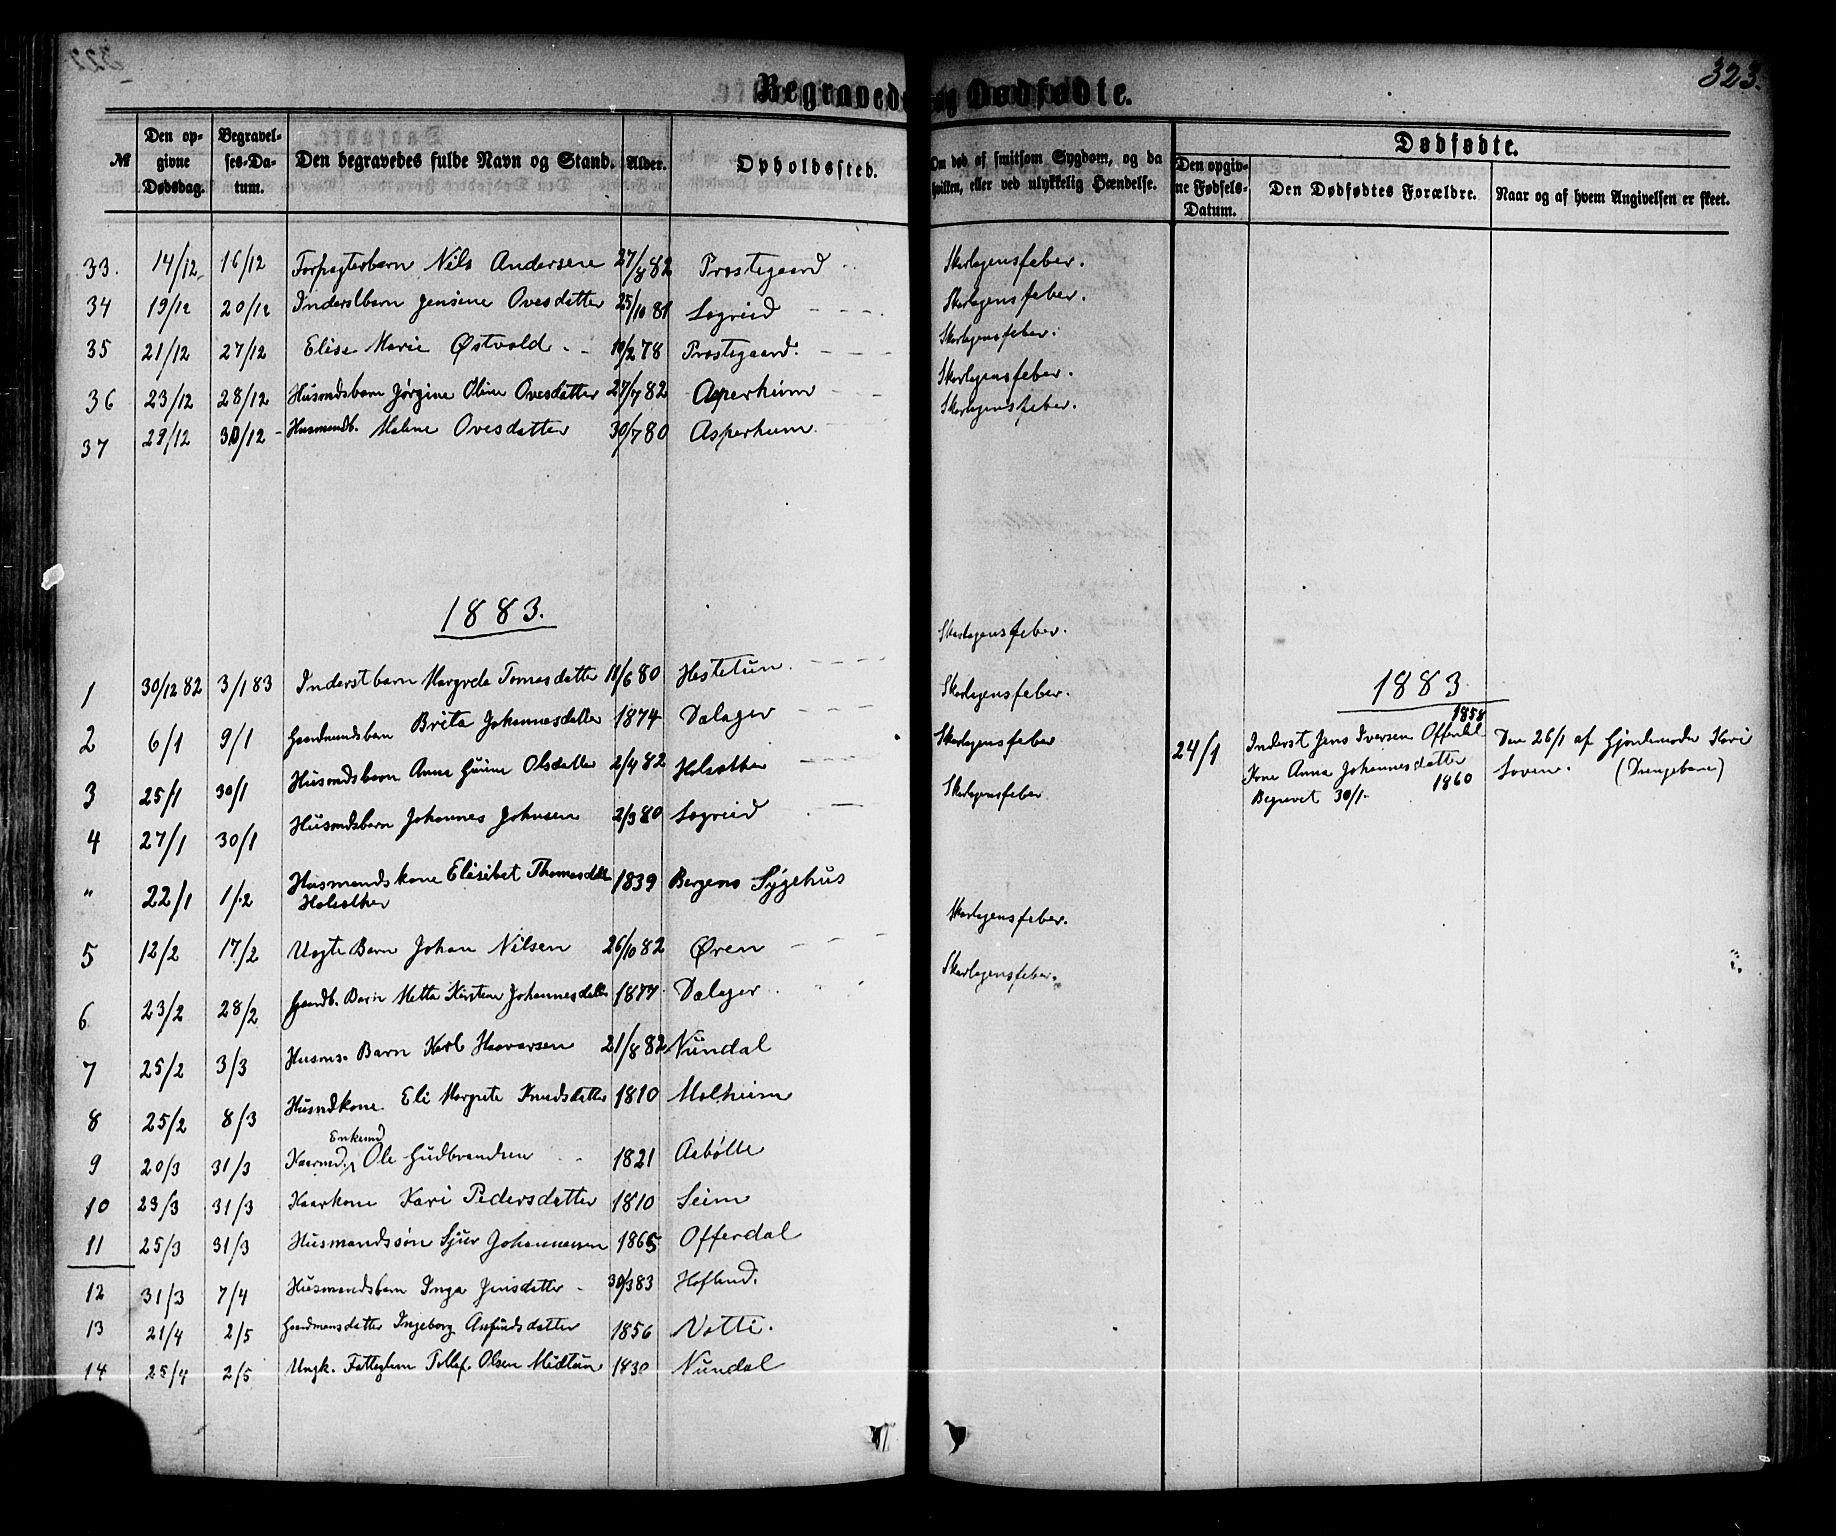 323.
Begravede og Dødfødte.
№
Den opgivne Dødsdag.
Begravelses-Datum.
Den begravedes fulde Navn og Stand.
Alder.
Opholdssted.
Om død af smitsom Sygdom, og da hvilken, eller ved ulykkelig Hændelse.
Dødfødte.
Den opgivne Fødsels-Datum.
Den Dødfødtes Forældre.
Naar og af hvem Angivelsen er skeet.
33. 14/12 16/12 Forpagterbarn Nils Andersen 27/8 82 Prestegaard Skarlagensfeber.
34 19/12 20/12 Inderstbarn Jensine Ovesdatter 25/10 81 Sogreid Skarlagensfeber.
35 21/12 27/12 Elise Marie Østvold 10/2 78 Prestegaard. Skarlagensfeber.
36 23/12 28/12 Husmdsbarn Jørgine Oline Ovesdatter 27/7 82 Asperheim Skarlagensfeber.
37 29/12 30/12 Husmandb. Malene Ovesdatter 30/7 80 Asperheim. Skarlagensfeber.
1883.
Skarlagensfeber.
1 30/12 82 3/1 83 Inderstbarn Margrete Tomasdatter 11/6 80 Hestetun.
Skarlagensfeber.
2 6/1 9/1 Gaardmandsbarn Brita Johannesdatter 1874 Dalager
Skarlagensfeber
3 25/1 30/1 Husmdsbarn Anna Olsdatter 2/4 82
Skarlagensfeber
4 27/1 30/1 Husmdsbarn Johannes Johnsen 2/3 80 Sogreid
" 22/1 1/2 Husmandskone Elisibet Thomasdatt 1839 Bergens Sygehus
Skarlagensfeber.
5 12/2 17/2 Uægte Barn Johan Nilsen 26/10 82 Øren
Skarlagensfeber.
6 23/2 28/2 Gaardb. Barn Metta Kirstine Johannesdatt 1877 Dalager
7 25/2 3/3 Husms. Barn Karl Haavarsen 21/8 82 Nundal
8 25/2 8/3 Husmdkone Eli Margrete Knudsdatter 1810 Molheim
Enkemd
9 20/3 31/3 Kaarmd. Ole Gudbrandsen 1821 Aabølte
10 23/3 31/3 Kaarkone Kari Pedersdatter 1810 Seim
11 25/3 31/3 Husmandssøn Sjur Johannesen 1865 Offerdal
12 31/3 7/4 Husmandsbarn Inga Jensdatter 30/3 83 Hofland.
13 21/4 2/5 Gaardmansdatter Ingeborg Arfindsdatter 1856 Votti.
14 25/4 2/5 Ungk. Fattiglem Tollef. Olsen Midtun 1830 Nundal
1883
24/1
1858
Inderst Jens Iversen Offerdal
Kone Anna Johannesdatter
1860
Begravet 30/1.
Den 26/1 af Gjordemoder Kari
Soven. (Drengebarn)